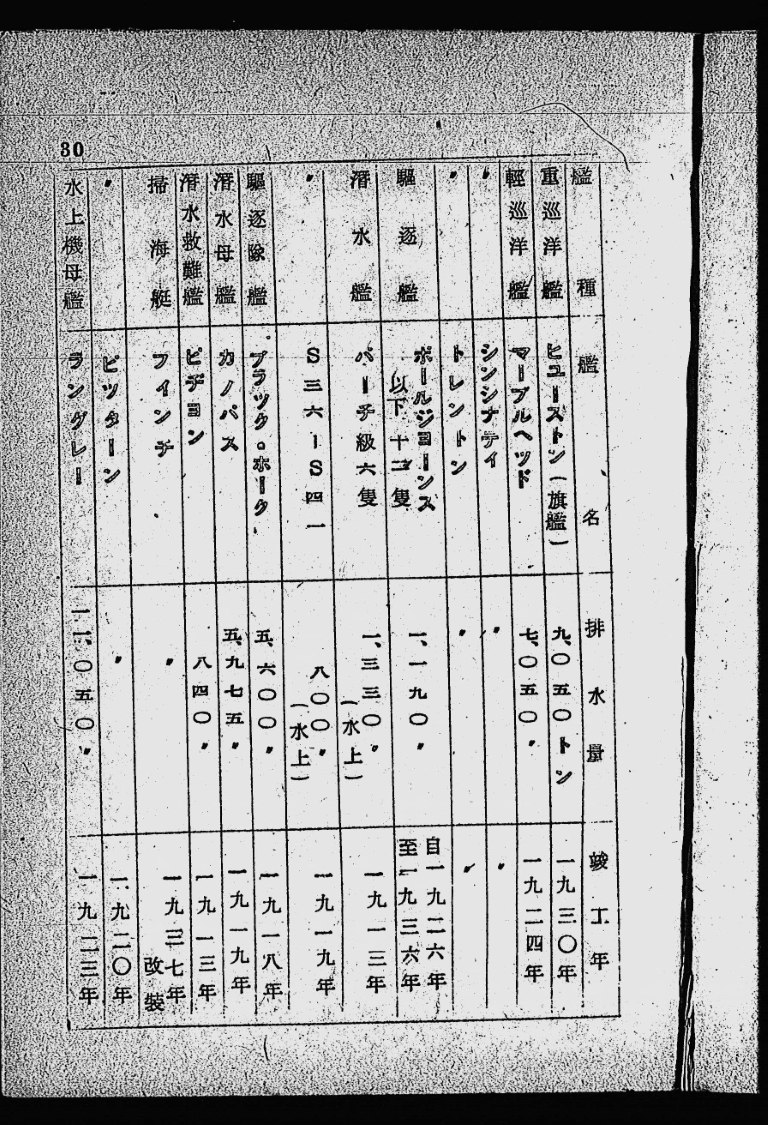 80
艦種 艦名 排水量 竣工年
重巡洋艦 ヒユーストン(旗艦) 九、〇五〇トン 一九三〇年
輕巡洋艦 マーブルヘツド 七、〇五〇〃 一九二四年
〃 シンシナテイ 〃 〃
〃 トレントン 〃 〃
驅逐艦 ポールジョーンス 以下十二隻 一、一九〇〃 自一九二六年 至一九三六年
潛水艦 パーチ級六隻 一、三三〇〃(水上) 一九一三年
〃 S三六ーS四一 八〇〇〃(水上) 一九一九年
驅逐隊艦 ブラツク・ホーク 五、六〇〇〃 一九一八年
潛水母艦 カノパス 五、九七五〃 一九一九年
潛水救難艦 ピヂヨン 八四〇〃 一九一三年
掃海艇 フインチ 〃 一九三七年改裝
〃 ビツターン 〃 一九二〇年
水上機母艦 ラングレー 一一、〇五〇〃 一九二三年